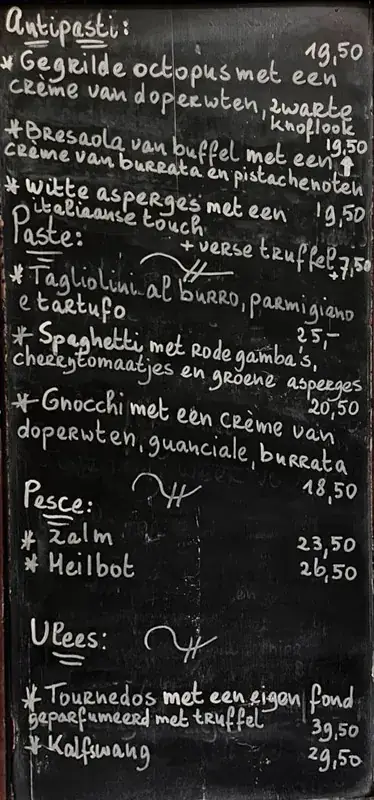 Antipasti:
19,50
* Gegrilde octopus met een
crème van doperwten, zwarte
knoflook
* Bresaola van buffel met een 19,50
crème van burrata en pistachenoten
* witte asperges met een 19,50
italiaanse touch
+ verse truffel +7,50
Paste:
* Tagliolini al burro, parmigiano
e tartufo 25,-
* Spaghetti met Rode gamba's,
cherrytomaatjes en groene asperges
20,50
* Gnocchi met een crème van
doperwten, guanciale, burrata
18,50
Pesce:
* Zalm 23,50
* Heilbot 26,50
Vlees:
* Tournedos met een eigen fond
geparfumeerd met truffel 39,50
* Kalfswang 29,50